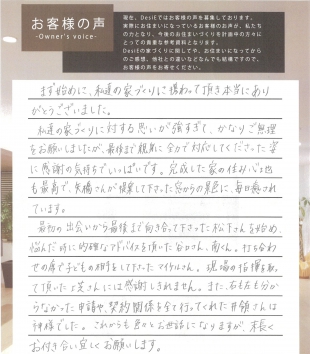 お客様の声
-Owner's voice-
現在、DesiEではお客様の声を募集しております。
実際にお住まいになっているお客様の声が、私たち
の力となり、今後のお住まいづくりを計画中の方々に
とっての貴重な参考資料となります。
DesiEの家づくりに関してや、お住まいになってから
のご感想、他社との違いなどなんでも結構ですので、
お客様の声をお寄せください。
まず始めに、私達の家づくりに携わって頂き本当にあり
がとうございました。
私達の家づくりに対する思いが強すぎて、かなりご無理
をお願いしましたが、最後まで親身に全力で対応してくださった姿
に感謝の気持ちでいっぱいです。完成した家の住み心地
も最高で、矢橋さんが提案して下さった窓からの景色に、毎日癒され
ています。
最初の出会いから最後まで向き合って下さった松下さんを始め、
悩んだ時に的確なアドバイスを頂いた谷口さん、南くん。打ち合わ
せの席で子どもの相手をして下さったマイケルさん。現場の指揮を取っ
て頂いた さんには感謝しきれません。また、右も左も分か
らなかった申請や、契約関係を全て行ってくれた井領さんは
神様でした。これからも色々とお世話になりますが、末長く
お付き合い宜しくお願いします。